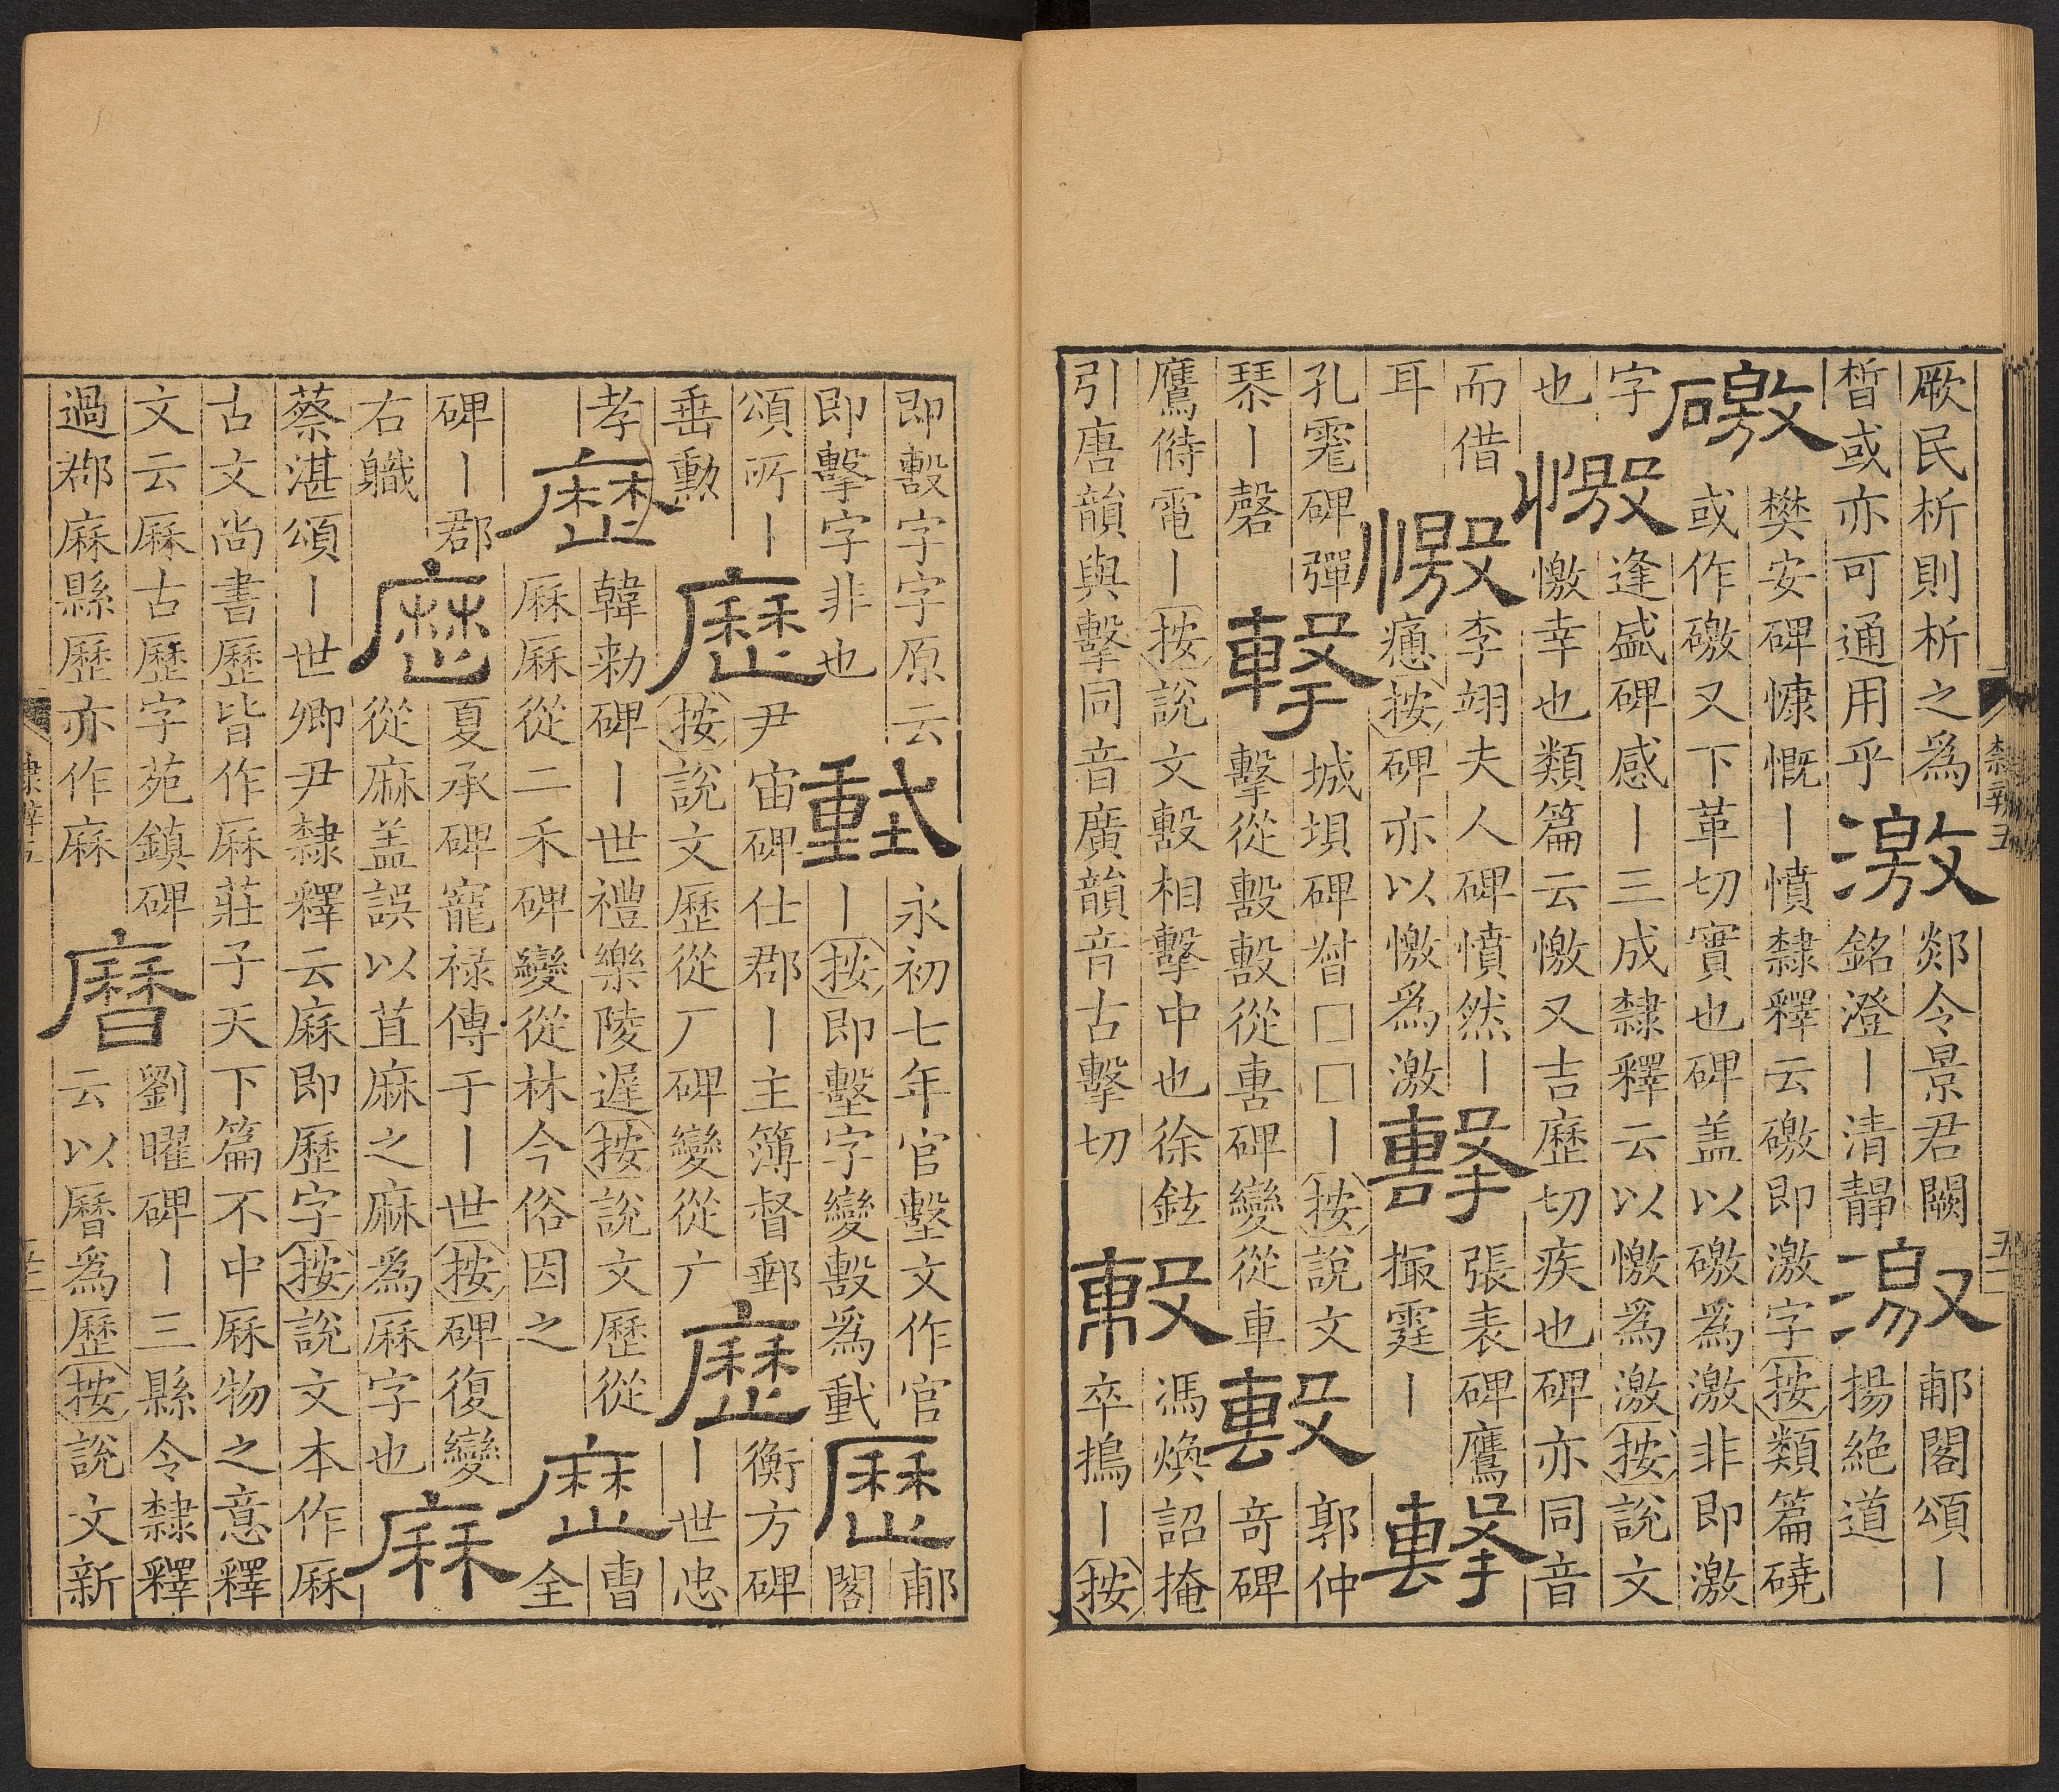 厥民析則析之為
晳或亦可通用乎
激
郯令景君闕
銘澄丨清靜
激
郙閣頌丨
揚絶道
礉
樊安碑慷慨丨憤隸釋云礉即激字按類篇磽
或作礉又下革切實也碑盖以礉為激非即激
字
也
憿
逢盛碑感丨三成隸釋云以憿為激按說文
憿幸也類篇云憿又吉歷切疾也碑亦同音
而借
耳
憿
李翊夫人碑憤然丨
癔按碑亦以憿為激
擊
張表碑鷹
撮霆丨
擊
孔宠碑彈
琴丨磬
擊
城垻碑□□丨按說文
擊從毄毄從軎碑變從車
毄
郭仲
奇碑
鷹偫電丨按說文毄相擊中也徐鉉
引唐韻與擊同音廣韻音古擊切
毄
馮煥詔掩
卒擣丨按
隸辨五
即毄字字原云
即擊字非也
永初七年官墼文作官
丨按即墼字變毄為
歷
郙
閣
頌所丨
垂勳
歷
尹宙碑仕郡丨主簿督郵
按說文歷從厂碑變從广
歷
衡方碑
丨世忠
孝
歷
韓勑碑丨世禮樂陵遲按說文歷從
厤厤從二禾碑變從林今俗因之
歷
曹
全
碑丨郡
右職
歷
夏承碑寵禄傳于丨世按碑復變
從麻盖誤以苴麻之麻為厤字也
麻
蔡湛頌丨世卿尹隸釋云麻即歷字按說文本作厤
古文尚書歷皆作厤莊子天下篇不中厤物之意釋
文云厤古歷字苑鎮碑
過郡麻縣歷亦作麻
曆
劉曜碑丨三縣令隸釋
云以曆為歷按說文新